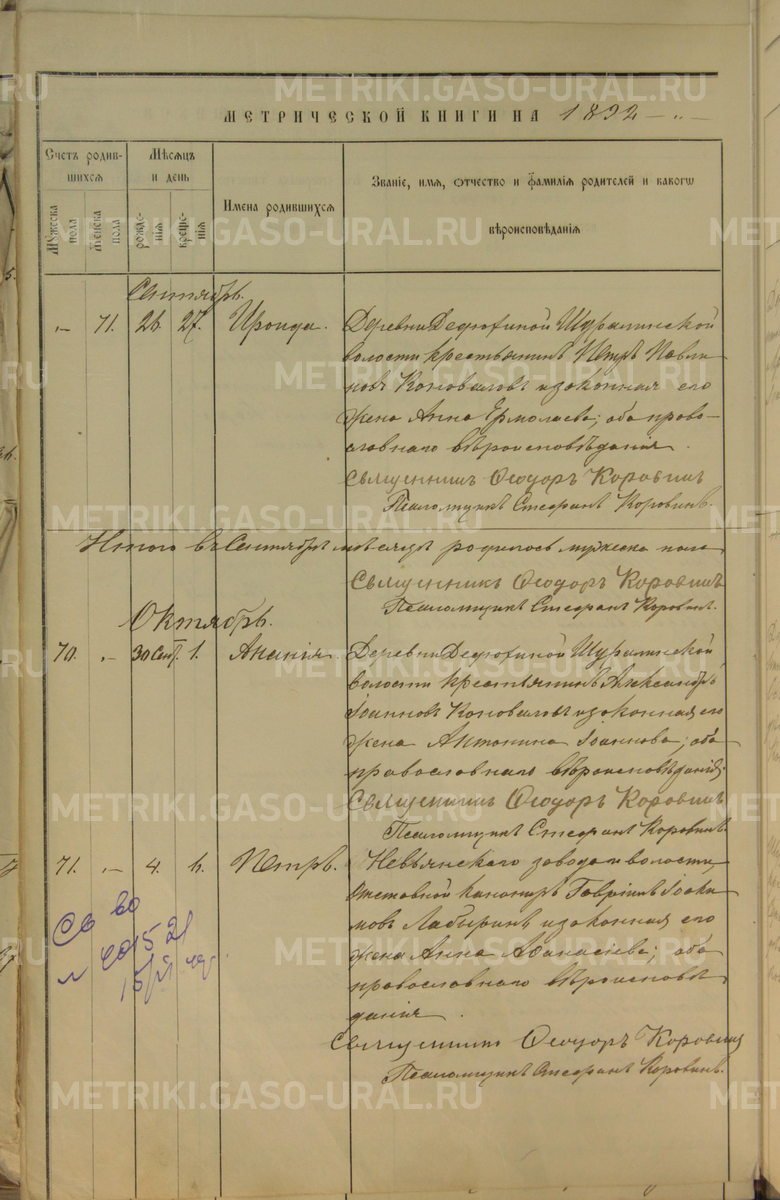 МЕТРИЧЕСКОЙ КНИГИ НА 1892
Счетъ родившихся
Мѣсяцъ и день
Имена родившихся
Званіе, имя, отчество и фамилія родителей и какого вѣроисповѣданія
Мужеска пола
Женска пола
рожденія
крещенія
Сентябрь.
„ 71. 26. 27. Ираида. Деревни Дедюхиной Шуралинской
волости крестьянинъ Петръ Павли
новъ Коноваловъ и законная его
жена Анна Ермолаева; оба право-
славнаго вѣроисповѣданія.
Священникъ Ѳеодоръ Коровинъ
Псаломщикъ Стефанъ Коровинъ.
Итого въ Сентябрѣ мѣсяцѣ родилось мужеска пола
Священникъ Ѳеодоръ Коровинъ
Псаломщикъ Стефанъ Коровинъ.
Октябрь.
70. „ 30 Сент. 1. Ананія Деревни Дедюхиной Шуралинской
волости крестьянинъ Александръ
Іоанновъ Коноваловъ и законная его
жена Антонина Іоаннова; оба
православнаго вѣроисповѣданія;
Священникъ Ѳеодоръ Коровинъ
Псаломщикъ Стефанъ Коровинъ.
71. „ 4. 6. Петръ. Невьянскаго завода и волости,
отставной канониръ Гавріилъ Іоаки
мовъ Лабыринъ и законная его
жена Анна Аѳанасіева; оба
православнаго вѣроисповѣ
данія.
Св во
15/II
Священникъ Ѳеодоръ Коровинъ
Псаломщикъ Стефанъ Коровинъ.
METRIKI.GASO-URAL.RU